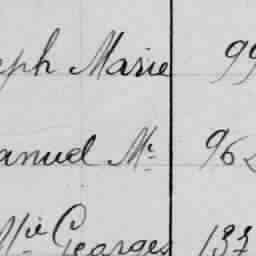 eph Marie 99
anuel Mc 962
Mie Georges 137